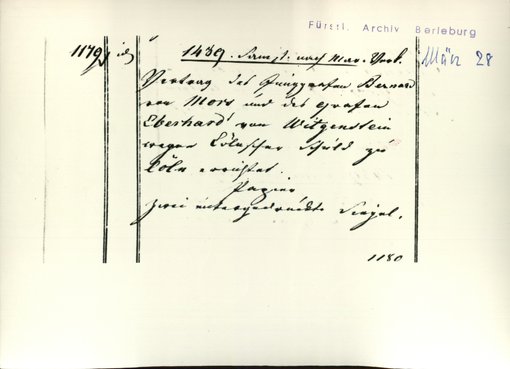 Fürstl. Archiv Berleburg
1179 id
1439. Samst. nach Mar. Verk.
März 28
Vertrag des Junggrafen Bernard
von Mors und des Grafen
Eberhard von Witgenstein
wegen Cölnischer Schuld zu
Cöln errichtet.
Papier
zwei untergedrückte Siegel.
1180